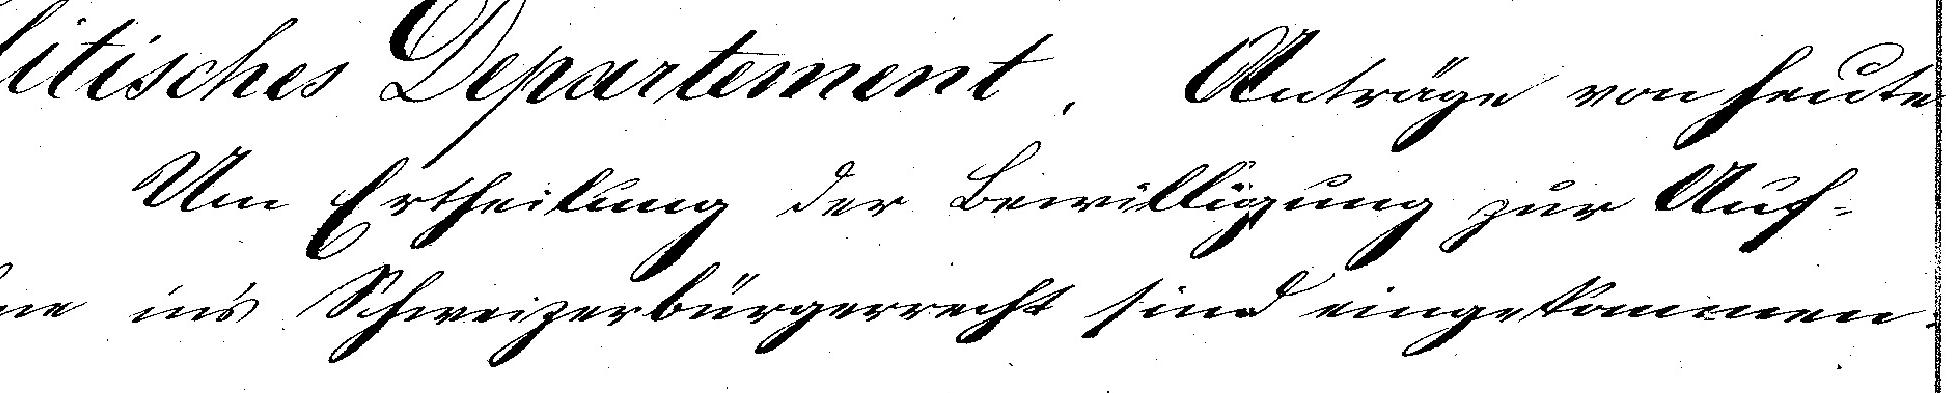 litisches Departement. Anträge von heute
Um Ertheilung der Bewilligung zur Auf-
ne in's Schweizerbürgerrecht sind eingekommen: